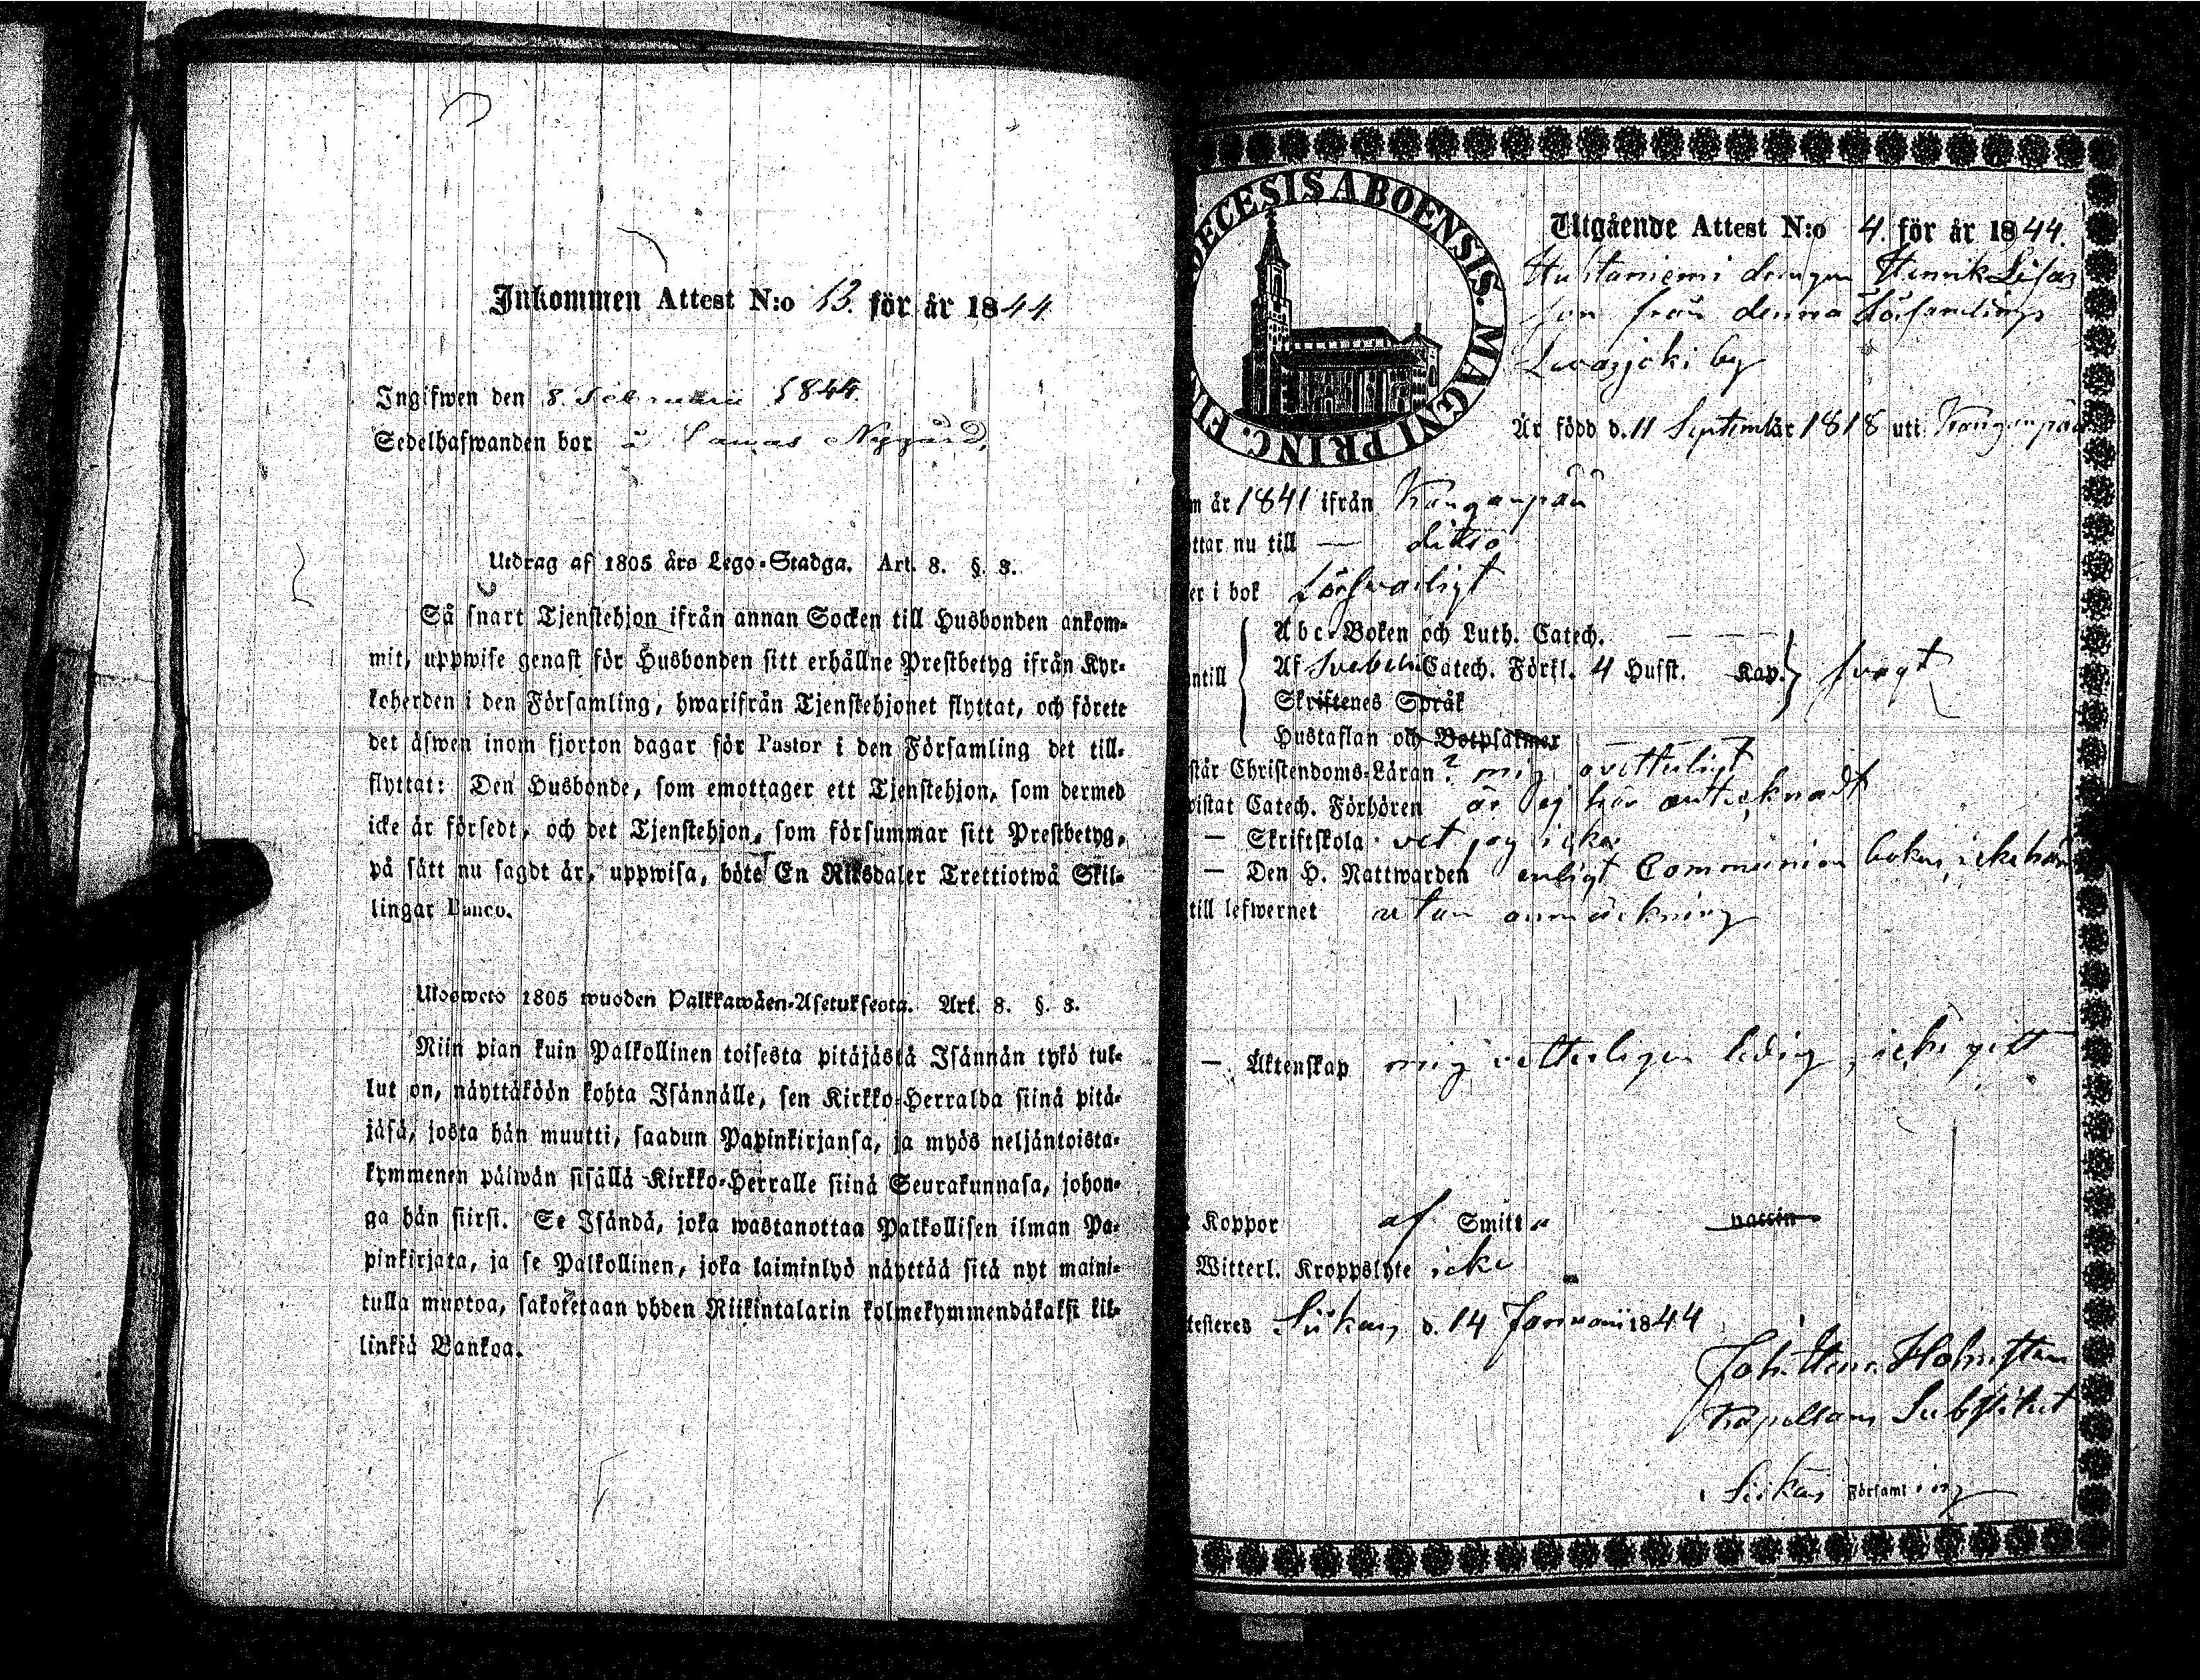 Inkommen Attest N:o 13. för år 1844.
Ingifwen den 8. Februarii 1844.
Sedelhafwanden bor å Nygård.
Utdrag af 1805 års Lego-Stadga. Art. 8. §. 3.
Så snart Tjenstehjon ifrån annan Socken till Husbonden ankom-
mit, uppwise genast för Husbonden sitt erhållne Prestbetyg ifrån Kyr-
koherden i den Församling, hwarifrån Tjenstehjonet flyttat, och förete
det åfwen inom fjorton dagar för Pastor i den Församling det till-
flyttat: Den Husbonde, som emottager ett Tjenstehjon, som dermed
icke är försedt, och det Tjenstehjon, som försummar sitt Prestbetyg,
på sätt nu sagdt är, uppwisa, böte En Riksdaler Trettiotwå Skil-
lingar Banco.
Ulosweto 1805 wuoden Palkkawäen-Asetuksesta. Art. 8. §. 3.
Niin pian kuin Palkollinen toisesta pitäjästä Isännän tykö tul-
lut on, näyttäköön kohta Isännälle, sen Kirkko-Herralda siinä pitä-
jäsä, josta hän muutti, saadun Papinkirjansa, ja myös neljäntoista-
kymmenen päiwän sisällä Kirkko-Herralle siinä Seurakunnasa, johon-
ga hän siirsi. Se Isändä, joka wastanottaa Palkollisen ilman Pa-
pinkirjata, ja se Palkollinen, joka laiminlyö näyttää sitä nyt maini-
tulla muotoa, sakotetaan yhden Riikintalarin kolmekymmendäkaksi kil-
linkiä Bankoa.
DECESIS ABOENSIS. MAGNI PRINC. FIN
Utgående Attest N:o 4. för år 1844.
drängen Henrik
son från denna Församlings
by
Är född d. 11 September 1818 uti Kanganpää
m år 1841 ifrån Kanganpää
ttar nu till — ditto
er i bok försvarligt
ntill
Abc-Boken och Luth. Catech. — — —
Af Svebelii Catech. Förkl. 4 Hufst. Kap. svagt
Skriftenes Språk
Hustaflan och Botpsalmer
står Christendoms-Läran? mig ovetterligt
vistat Catech. Förhören är ej här antecknadt
— Skriftskola vet jag icke
— Den H. Nattwarden enligt Communion boken, icke här
till lefwernet utan anmärkning
— Äktenskap mig vetterligen ledig, icke gift
Koppor af Smitta vaccin
Witterl. Kroppslyte icke
testeres Siikais d. 14 Januarii 1844
Joh. Henr. Holmsten
Kapellans Substitut
Siikais Församling